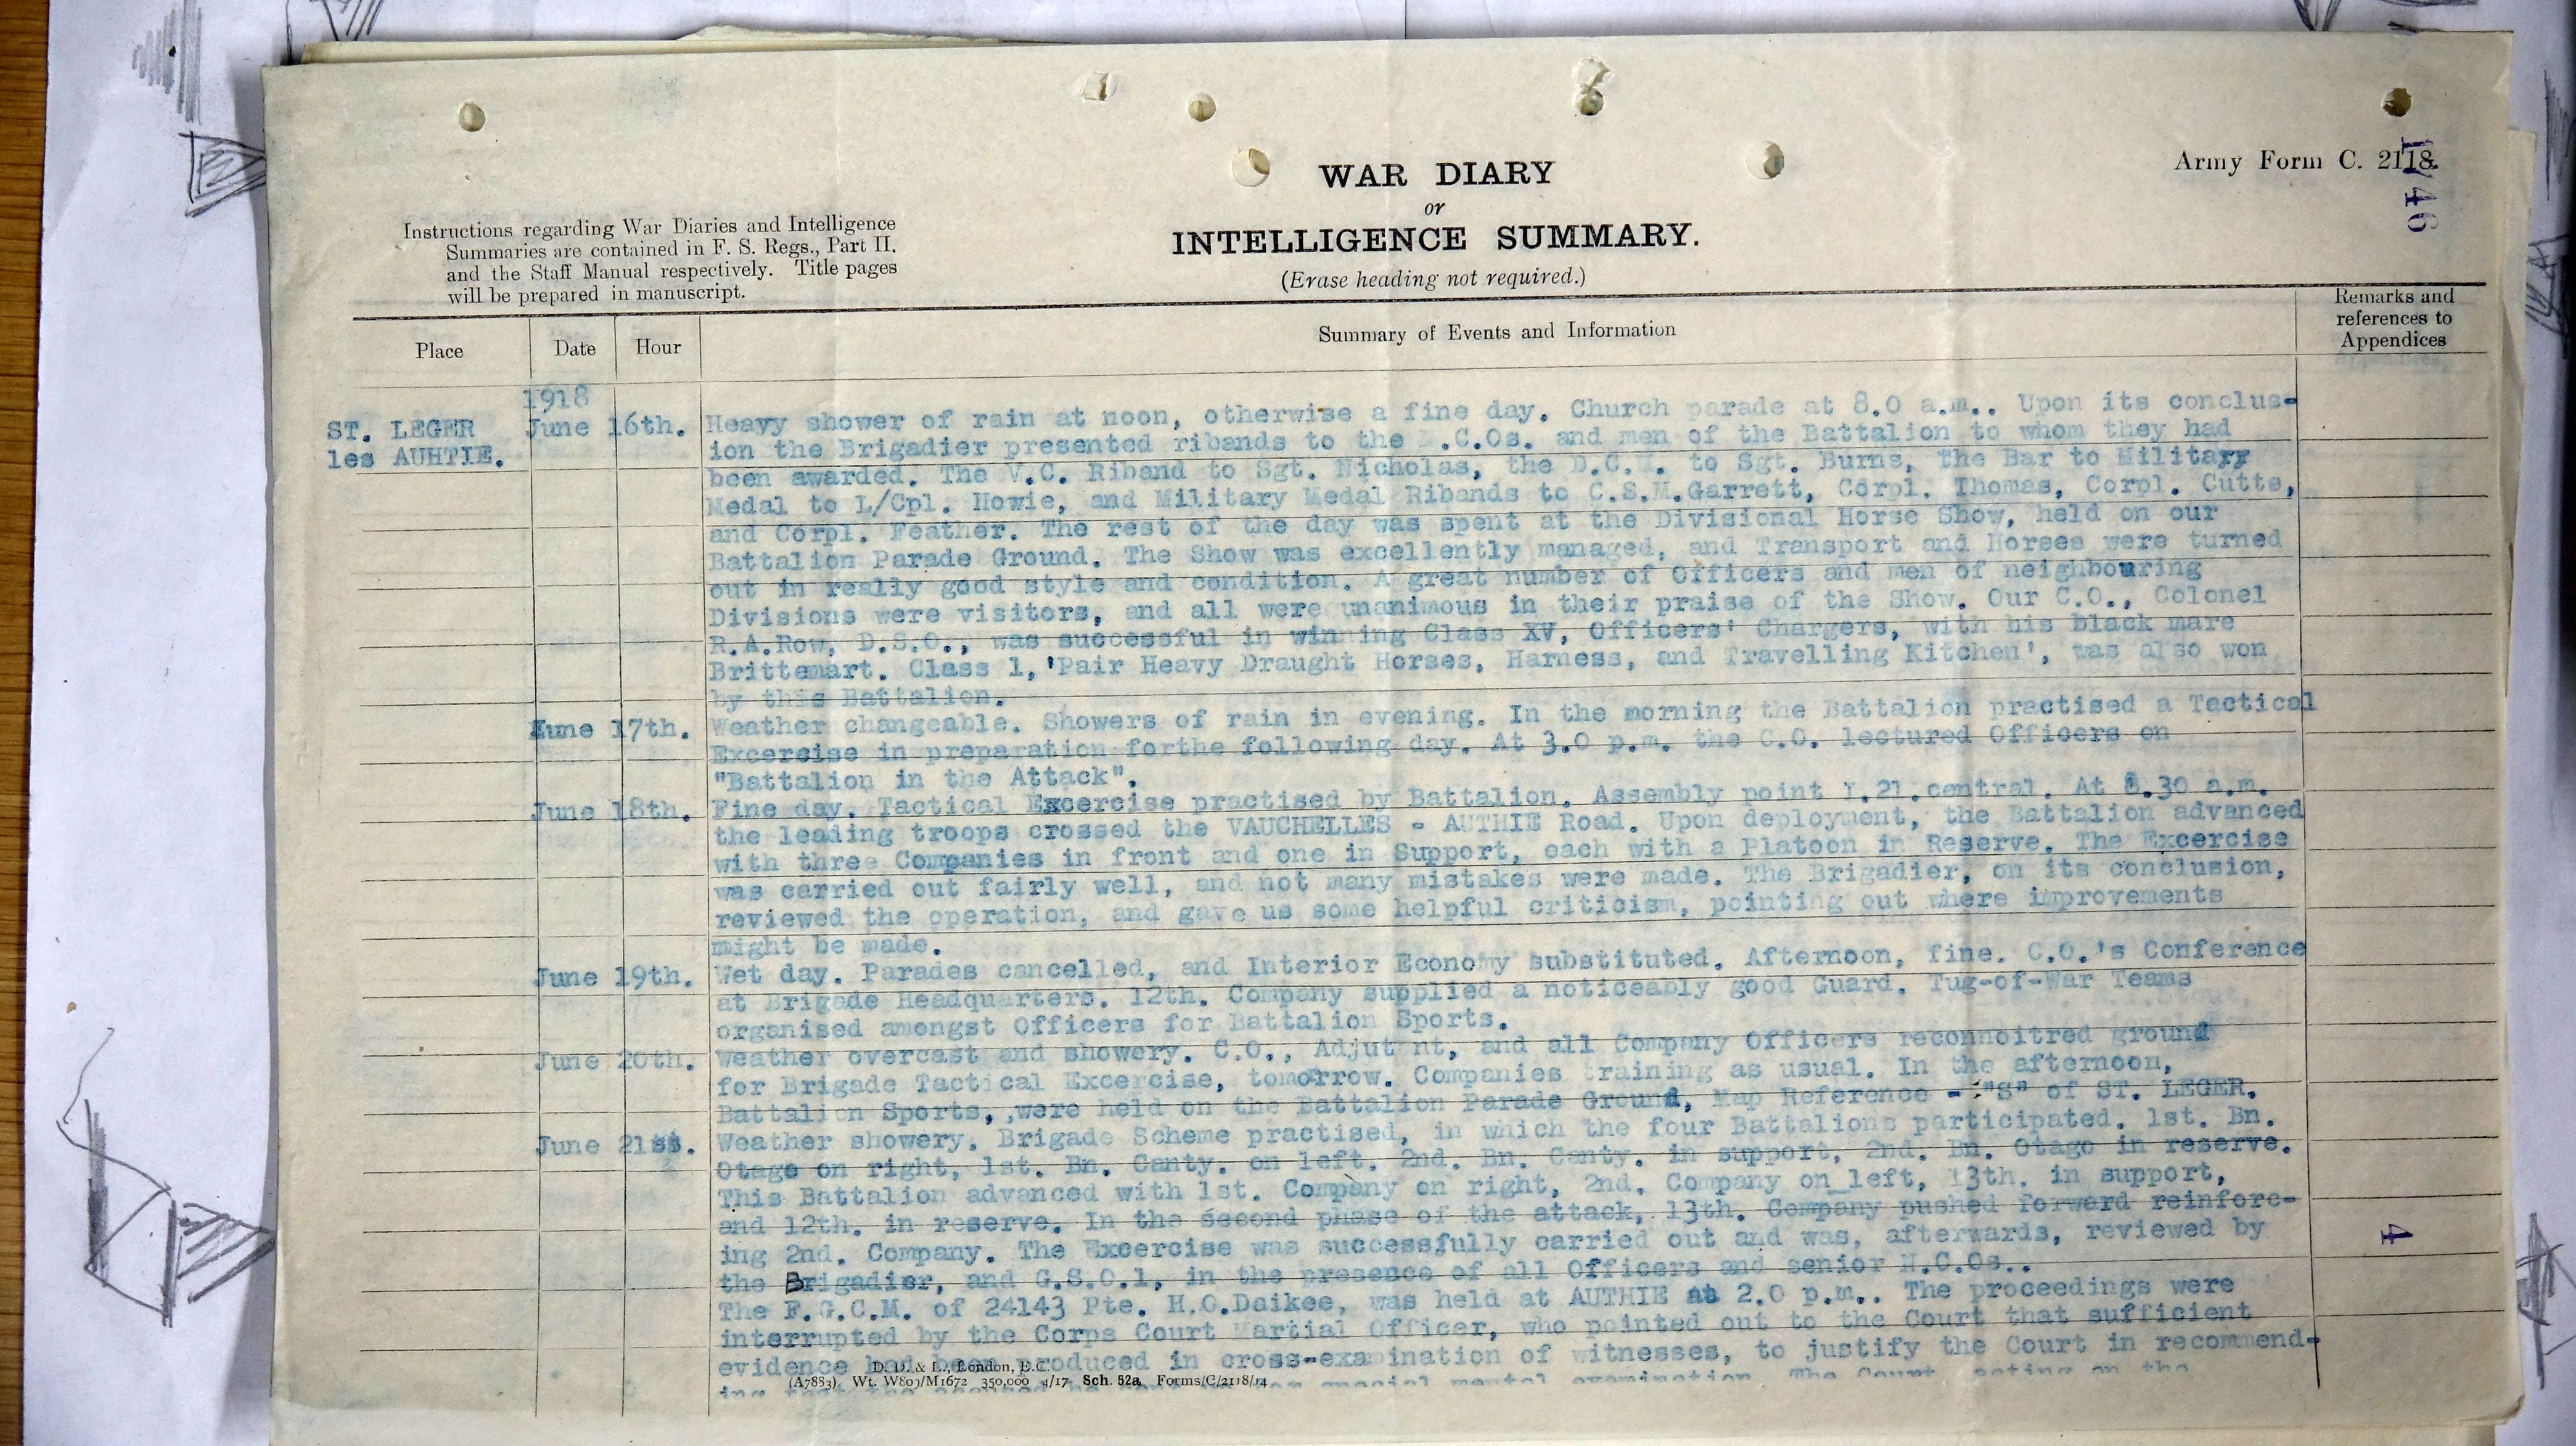 Army Form C. 2118.
1/46
WAR DIARY
or
INTELLIGENCE SUMMARY.
(Erase heading not required.)
Instructions regarding War Diaries and Intelligence
Summaries are contained in F. S. Regs., Part II.
and the Staff Manual respectively. Title pages
will be prepared in manuscript.
Place
Date
Hour
Summary of Events and Information
Remarks and
references to
Appendices
1918
ST. LEGER
les AUHTIE.
June 16th.
Heavy shower of rain at noon, otherwise a fine day. Church parade at 8.0 a.m.. Upon its conclus-
ion the Brigadier presented ribands to the .C.Os. and men of the Battalion to whom they had
been awarded. The V.C. Riband to Sgt. Nicholas, the D.C.M. to Sgt. Burns, the Bar to Military
Medal to L/Cpl. Howie, and Military Medal Ribands to C.S.M.Garrett, Corpl. Thomas, Corpl. Cutts,
and Corpl. Feather. The rest of the day was spent at the Divisional Horse Show, held on our
Battalion Parade Ground. The Show was excellently managed, and Transport and Horses were turned
out in really good style and condition. A great number of Officers and men of neighbouring
Divisions were visitors, and all were unanimous in their praise of the Show. Our C.O., Colonel
R.A.Row, D.S.O., was successful in winning Class XV, Officers' Chargers, with his black mare
Brittemart. Class 1, 'Pair Heavy Draught Horses, Harness, and Travelling Kitchen', was also won
by this Battalion.
June 17th.
Weather changeable. Showers of rain in evening. In the morning the Battalion practised a Tactical
Excercise in preparation forthe following day. At 3.0 p.m. the C.O. lectured Officers on
"Battalion in the Attack".
June 18th.
Fine day. Tactical Excercise practised by Battalion. Assembly point I.21.central. At 8.30 a.m.
the leading troops crossed the VAUCHELLES - AUTHIE Road. Upon deployment, the Battalion advanced
with three Companies in front and one in Support, each with a Platoon in Reserve. The Excercise
was carried out fairly well, and not many mistakes were made. The Brigadier, on its conclusion,
reviewed the operation, and gave us some helpful criticism, pointing out where improvements
might be made.
June 19th.
Wet day. Parades cancelled, and Interior Economy substituted. Afternoon, fine. C.O.'s Conference
at Brigade Headquarters. 12th. Company supplied a noticeably good Guard. Tug-of-War Teams
organised amongst Officers for Battalion Sports.
June 20th.
Weather overcast and showery. C.O., Adjut nt, and all Company Officers reconnoitred ground
for Brigade Tactical Excercise, tomorrow. Companies training as usual. In the afternoon,
Battalion Sports, ,were held on the Battalion Parade Ground, Map Reference - "S" of ST. LEGER.
June 21st.
Weather showery. Brigade Scheme practised, in which the four Battalions participated. 1st. Bn.
Otago on right, 1st. Bn. Canty. on left. 2nd. Bn. Canty. in support, 2nd. Bn. Otago in reserve.
This Battalion advanced with 1st. Company on right, 2nd. Company on left, 13th. in support,
and 12th. in reserve. In the second phase of the attack, 13th. Company pushed forward reinforc-
ing 2nd. Company. The Excercise was successfully carried out and was, afterwards, reviewed by
the Brigadier, and G.S.O.1, in the presence of all Officers and senior N.C.Os..
The F.G.C.M. of 24143 Pte. H.O.Daikee, was held at AUTHIE at 2.0 p.m.. The proceedings were
interrupted by the Corps Court Martial Officer, who pointed out to the Court that sufficient
evidence had been produced in cross-examination of witnesses, to justify the Court in recommend-
special mental examination. The Court, acting on the
4
D. D. & L., London, E.C.
(A7883) Wt. W809/M1672 350,000 4/17 Sch. 52a Forms/C/2118/14